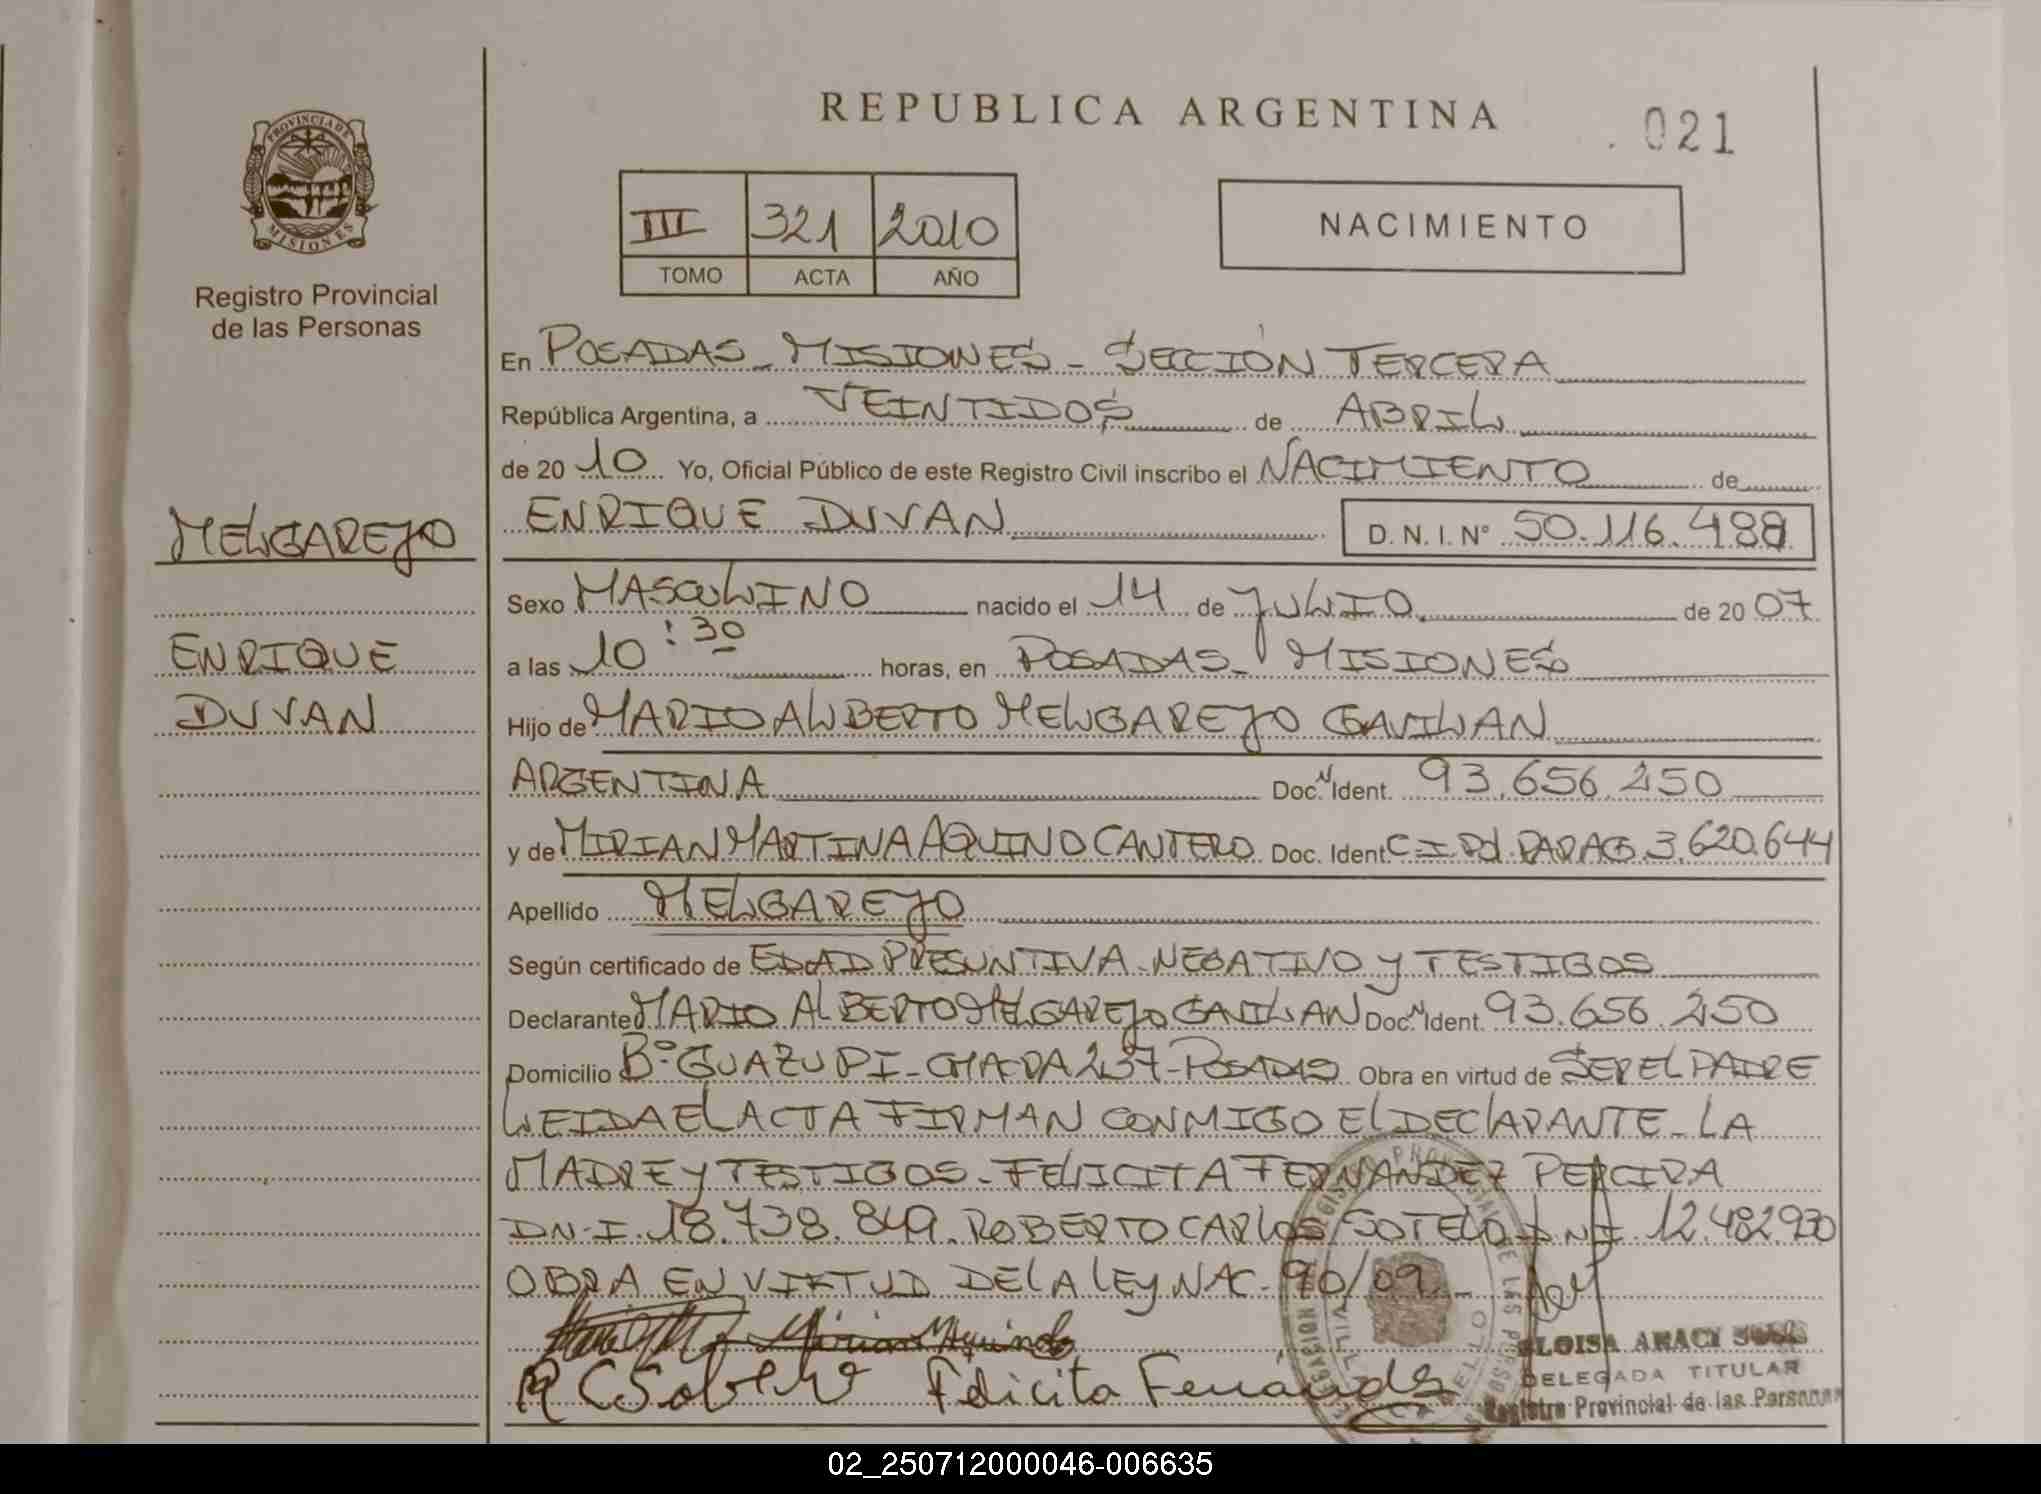 REPUBLICA ARGENTINA
021
PROVINCIA DE
MISIONES
Registro Provincial
de las Personas
III 321 2010
TOMO ACTA AÑO
NACIMIENTO
En POSADAS - MISIONES - SECCIÓN TERCERA
República Argentina, a VEINTIDOS de ABRIL
de 20 10 Yo, Oficial Público de este Registro Civil inscribo el NACIMIENTO de
ENRIQUE DUVAN D. N. I. Nº 50.116.488
MELGAREJO
ENRIQUE
DUVAN
Sexo MASCULINO nacido el 14 de JULIO de 20 07
a las 10:30 horas, en POSADAS - MISIONES
Hijo de MARIO ALBERTO MELGAREJO GAVILAN
ARGENTINA Doc. N Ident. 93.656.250
y de MIRIAN MARTINA AQUINO CANTERO Doc. Ident C.I. Pol. PARAG. 3.620.644
Apellido MELGAREJO
Según certificado de EDAD PRESUNTIVA - NEGATIVO Y TESTIGOS
Declarante MARIO ALBERTO MELGAREJO GAVILAN Doc. N Ident. 93.656.250
Domicilio Bº GUAZUPI - CHARA 237 - POSADAS Obra en virtud de SER EL PADRE
LEIDA EL ACTA FIRMAN CONMIGO EL DECLARANTE - LA
MADRE Y TESTIGOS - FELICITA FERNANDEZ PEREIRA
D.N.I. 18.738.849. ROBERTO CARLOS SOTELO D.N.I. 12.482.930
OBRA EN VIRTUD DE LA LEY NAC. 90/09
Mirian M Aquino
Felicita Fernández
ELOISA ARACI
DELEGADA TITULAR
Registro Provincial de las Personas
02_250712000046-006635